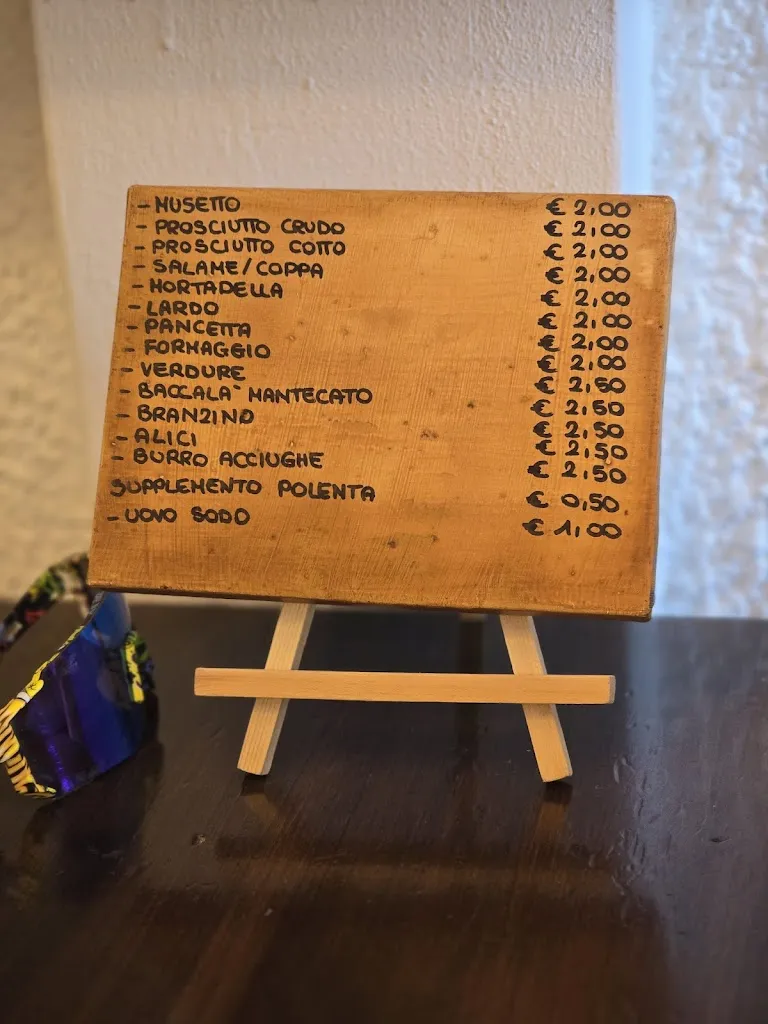 - MUSETTO € 2,00
- PROSCIUTTO CRUDO € 2,00
- PROSCIUTTO COTTO € 2,00
- SALAME/COPPA € 2,00
- MORTADELLA € 2,00
- LARDO € 2,00
- PANCETTA € 2,00
- FORMAGGIO € 2,00
- VERDURE € 2,50
- BACCALA` MANTECATO € 2,50
- BRANZINO € 2,50
- ALICI € 2,50
- BURRO ACCIUGHE € 2,50
SUPPLEMENTO POLENTA € 0,50
- UOVO SODO € 1,00